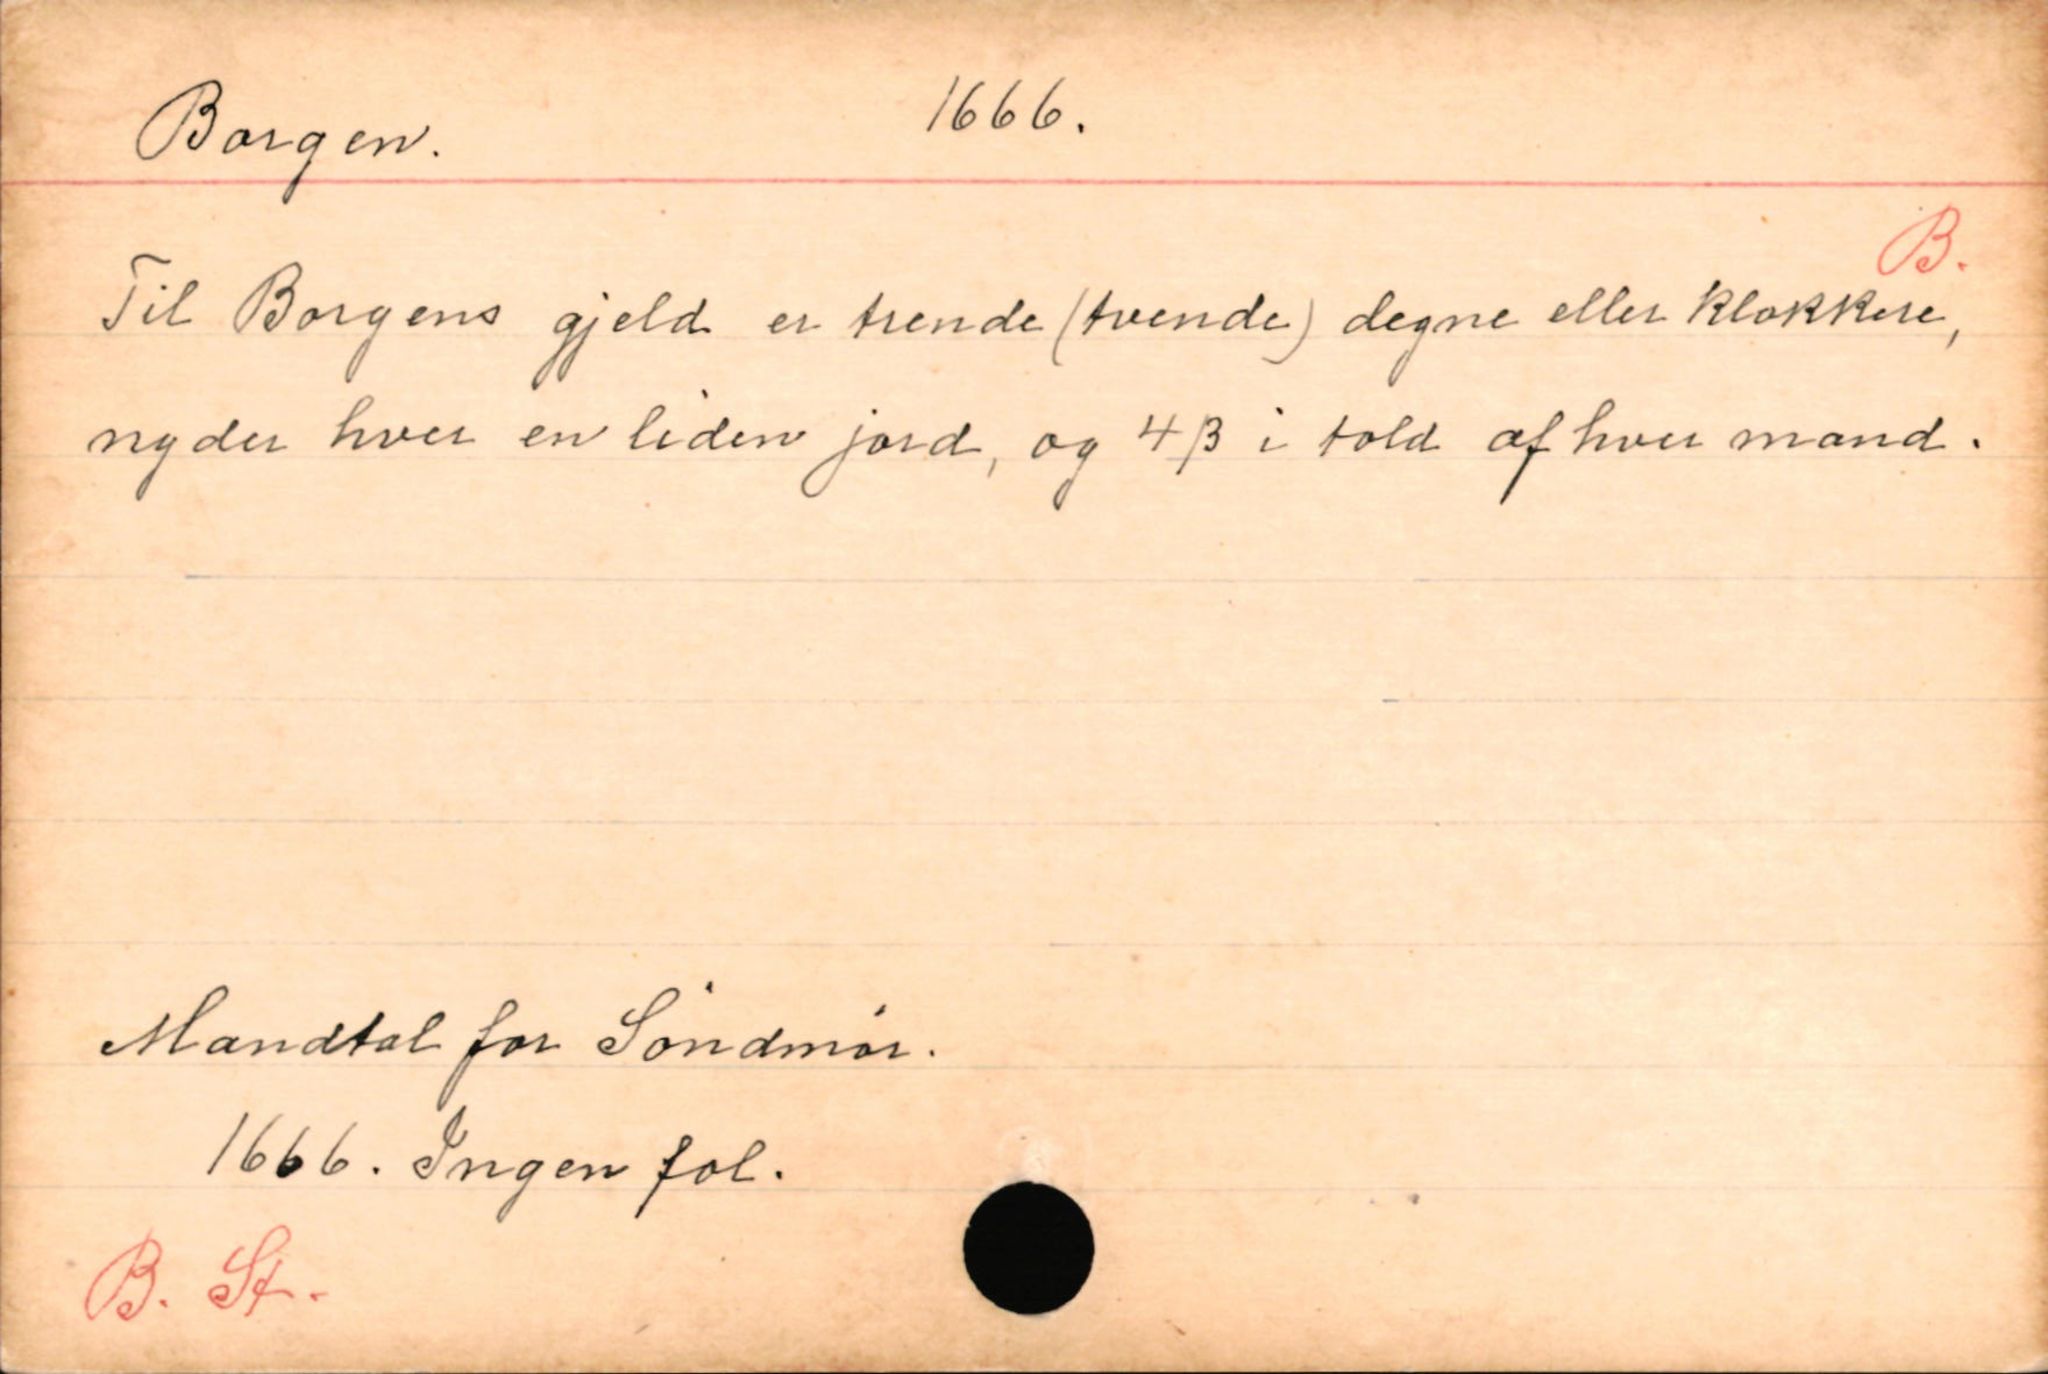 Borgen. 1666.
B.
Til Borgens gjeld er trende (tvende) degne eller klokkere,
nyder hver en liden jord, og 4 β i told af hver mand.
Mandtal for Söndmör.
1666. Ingen fol.
B. St.